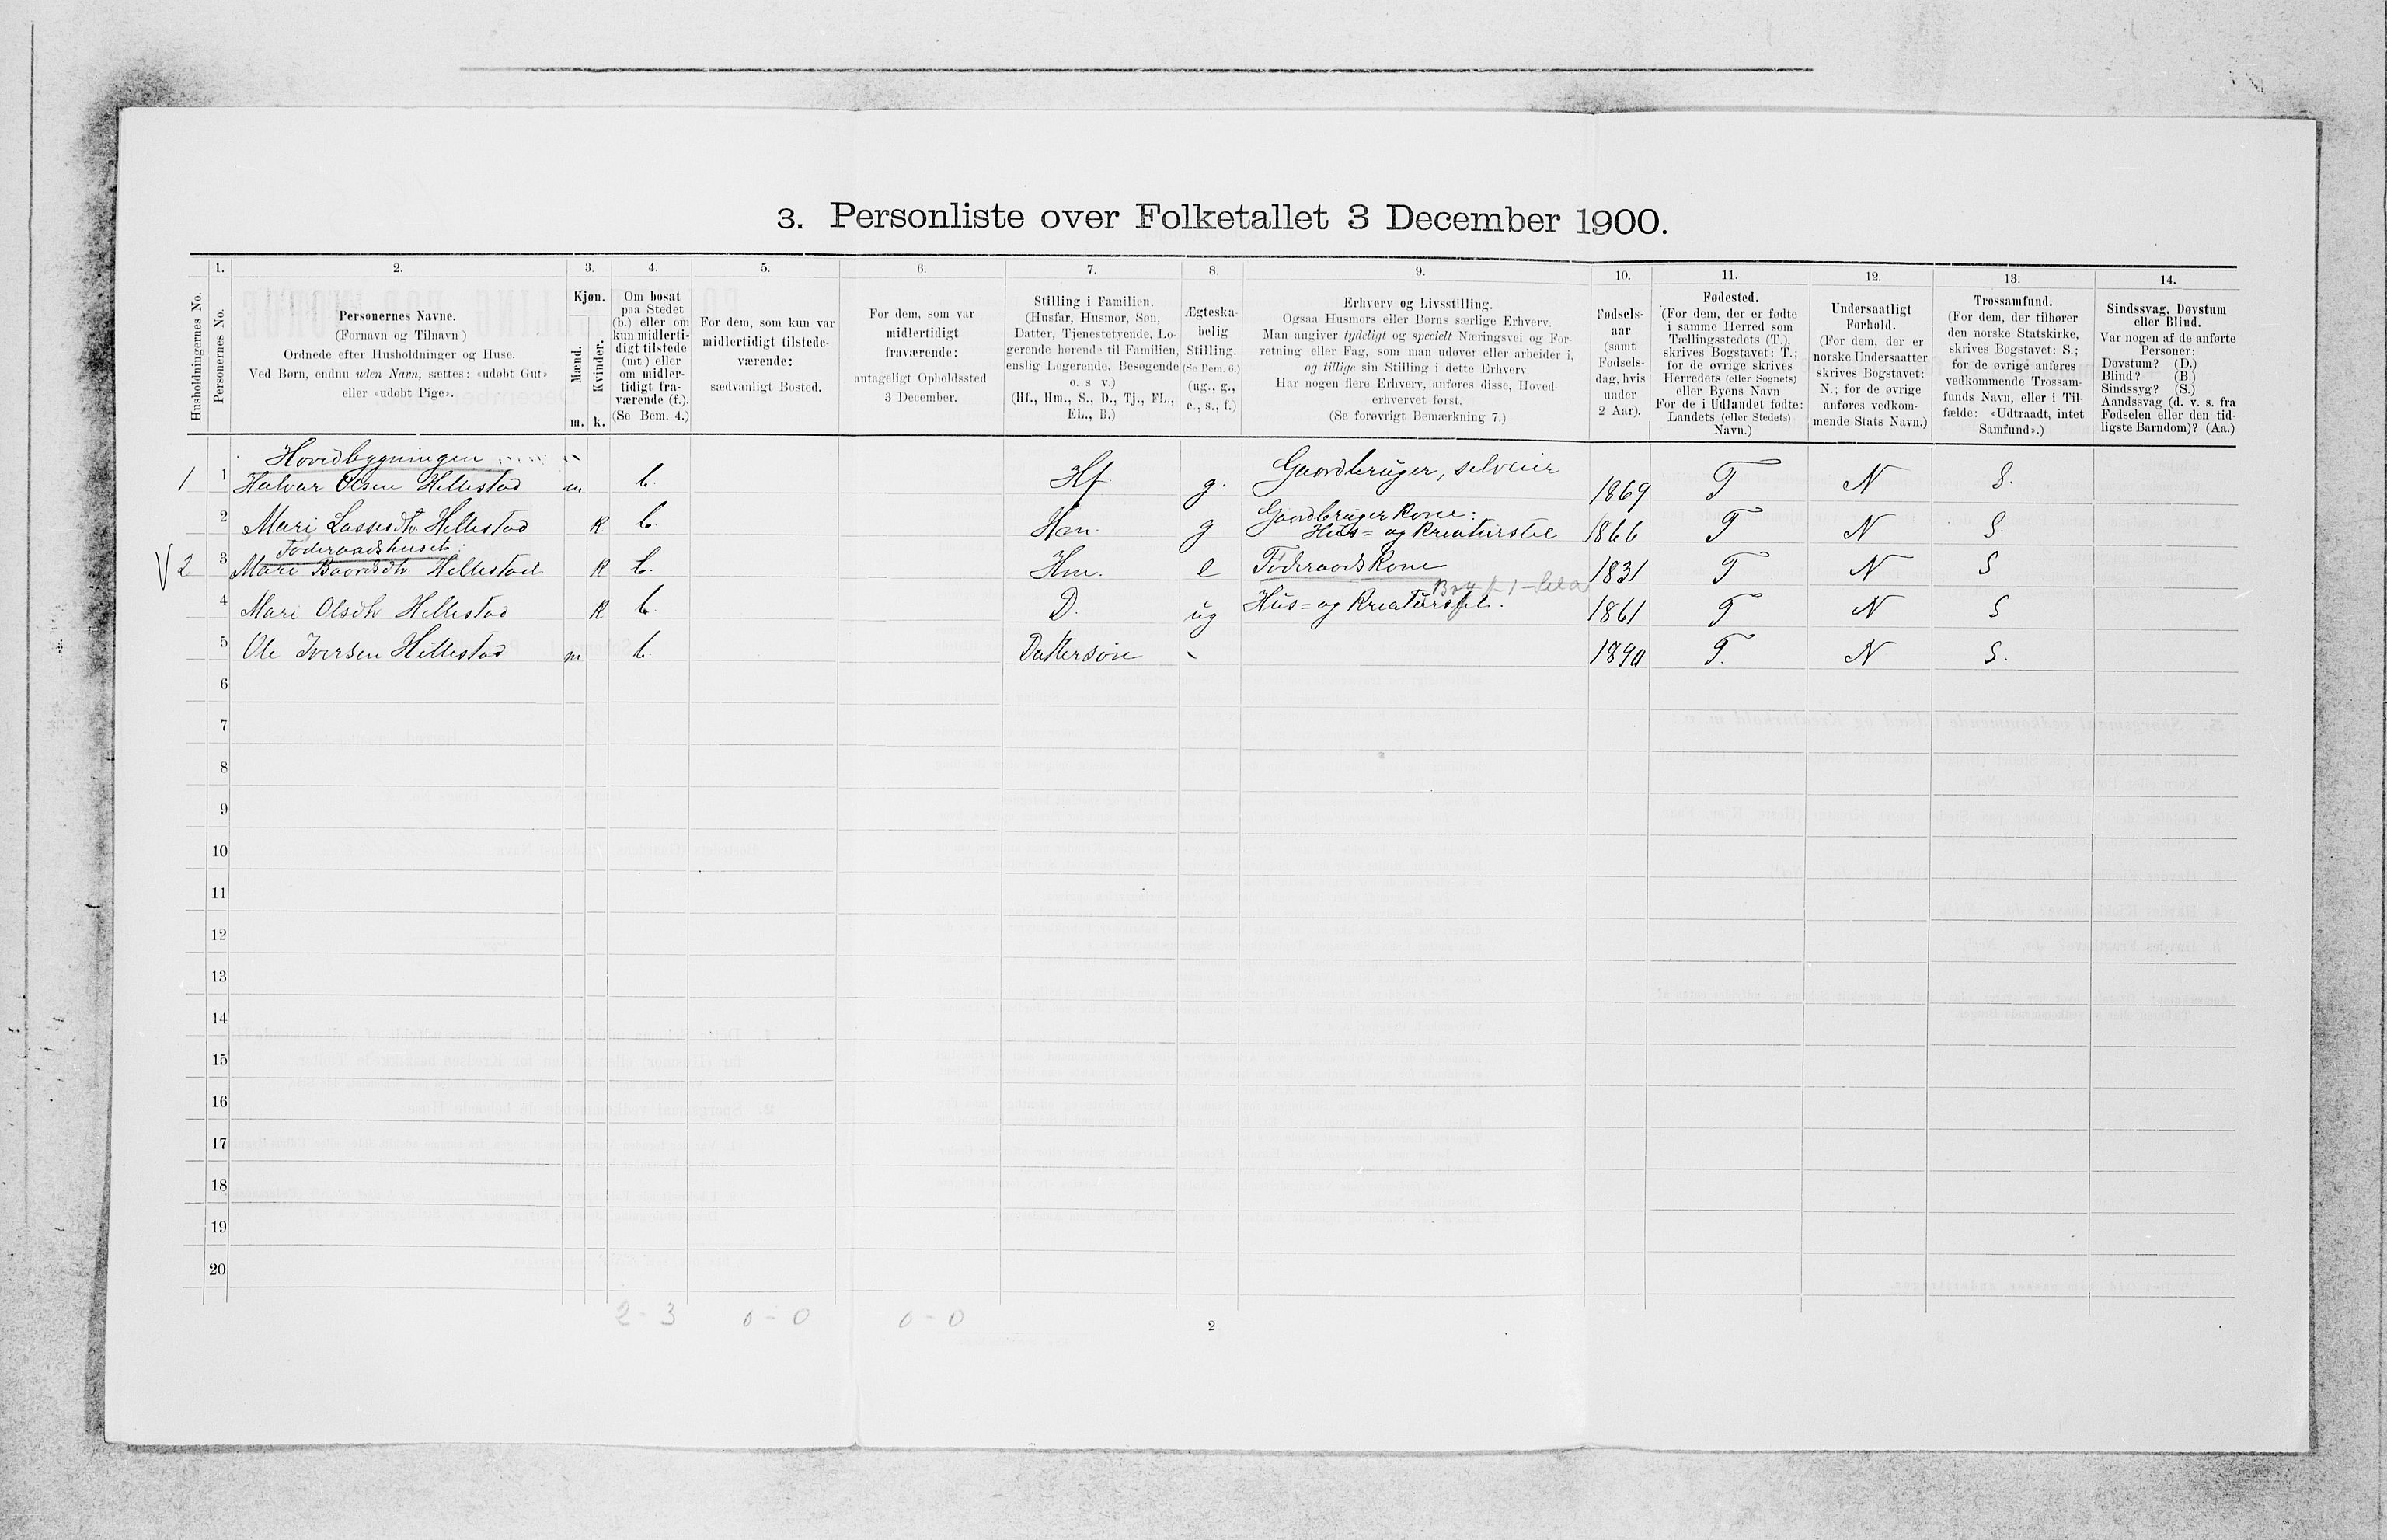 3. Personliste over Folketallet 3 December 1900.
1. 2. 3. 4. 5. 6. 7. 8. 9. 10. 11. 12. 13. 14.
Husholdningernes No.
Personernes No.
Personernes Navne.
(Fornavn og Tilnavn)
Ordnede efter Husholdninger og Huse.
Ved Børn, endnu uden Navn, sættes: «udøbt Gut»
eller «udøbt Pige».
Kjøn.
Mænd.
Kvinder.
m. k.
Om bosat
paa Stedet
(b.) eller om
kun midlerti-
digt tilstede
(mt.) eller
om midler-
tidigt fra-
værende (f.).
(Se Bem. 4.)
For dem, som kun var
midlertidigt tilstede-
værende:
sædvanligt Bosted.
For dem, som var
midlertidigt
fraværende:
antageligt Opholdssted
3 December.
Stilling i Familien.
(Husfar, Husmor, Søn,
Datter, Tjenestetyende, Lo-
gerende hørende til Familien,
enslig Logerende, Besøgende
o. s v.)
(Hf., Hm., S., D., Tj., FL.,
EL., B.)
Ægteska-
belig
Stilling.
(Se Bem. 6.)
(ug., g.,
e., s., f.)
Erhverv og Livsstilling.
Ogsaa Husmors eller Børns særlige Erhverv.
Man angiver tydeligt og specielt Næringsvei og For-
retning eller Fag, som man udøver eller arbeider i,
og tillige sin Stilling i dette Erhverv
Har nogen flere Erhverv, anføres disse, Hoved-
erhvervet først.
(Se forøvrigt Bemærkning 7.)
Fødsels-
aar
(samt
Fødsels-
dag, hvis
under
2 Aar).
Fødested.
(For dem, der er fødte
i samme Herred som
Tællingsstedets (T.),
skrives Bogstavet: T.;
for de øvrige skrives
Herredets (eller Sognets)
eller Byens Navn
For de i Udlandet fødte:
Landets (eller Stedets)
Navn.)
Undersaatligt
Forhold.
(For dem, der er
norske Undersaatter
skrives Bogstavet:
N.; for de øvrige
anføres vedkom-
mende Stats Navn.)
Trossamfund.
(For dem, der tilhører
den norske Statskirke,
skrives Bogstavet: S.;
for de øvrige anføres
vedkommende Trossam-
funds Navn, eller i Til-
fælde: «Udtraadt, intet
Samfund».)
Sindssvag, Døvstum
eller Blind.
Var nogen af de anførte
Personer:
Døvstum? (D.)
Blind? (B.)
Sindssyg? (S.)
Aandssvag (d. v. s. fra
Fødselen eller den tid-
ligste Barndom)? (Aa.)
Hovedbygningen
1 1 Halvar Olsen Hellestad m b. Hf g. Gaardbruger, selveier 1869 T N S.
2 Mari Lassesdtr. Hellestad k b. Hm. g. Gaardbruger kone:
Hus= og Kreaturstel 1866 T N S.
Føderaadshuset:
V 2 3 Mari Baardsdtr. Hellestad k b. Hm. e Føderaads Kone 1831 T N S
4 Mari Olsdtr. Hellestad k b. D. ug Hus= og Kreaturstel. 1861 T N S
5 Ole Iversen Hellestad m b. Dattersøn 1890 T. N S.
6
7
8
9
10
11
12
13
14
15
16
17
18
19
20
2 - 3 0 - 0 0 - 0
2